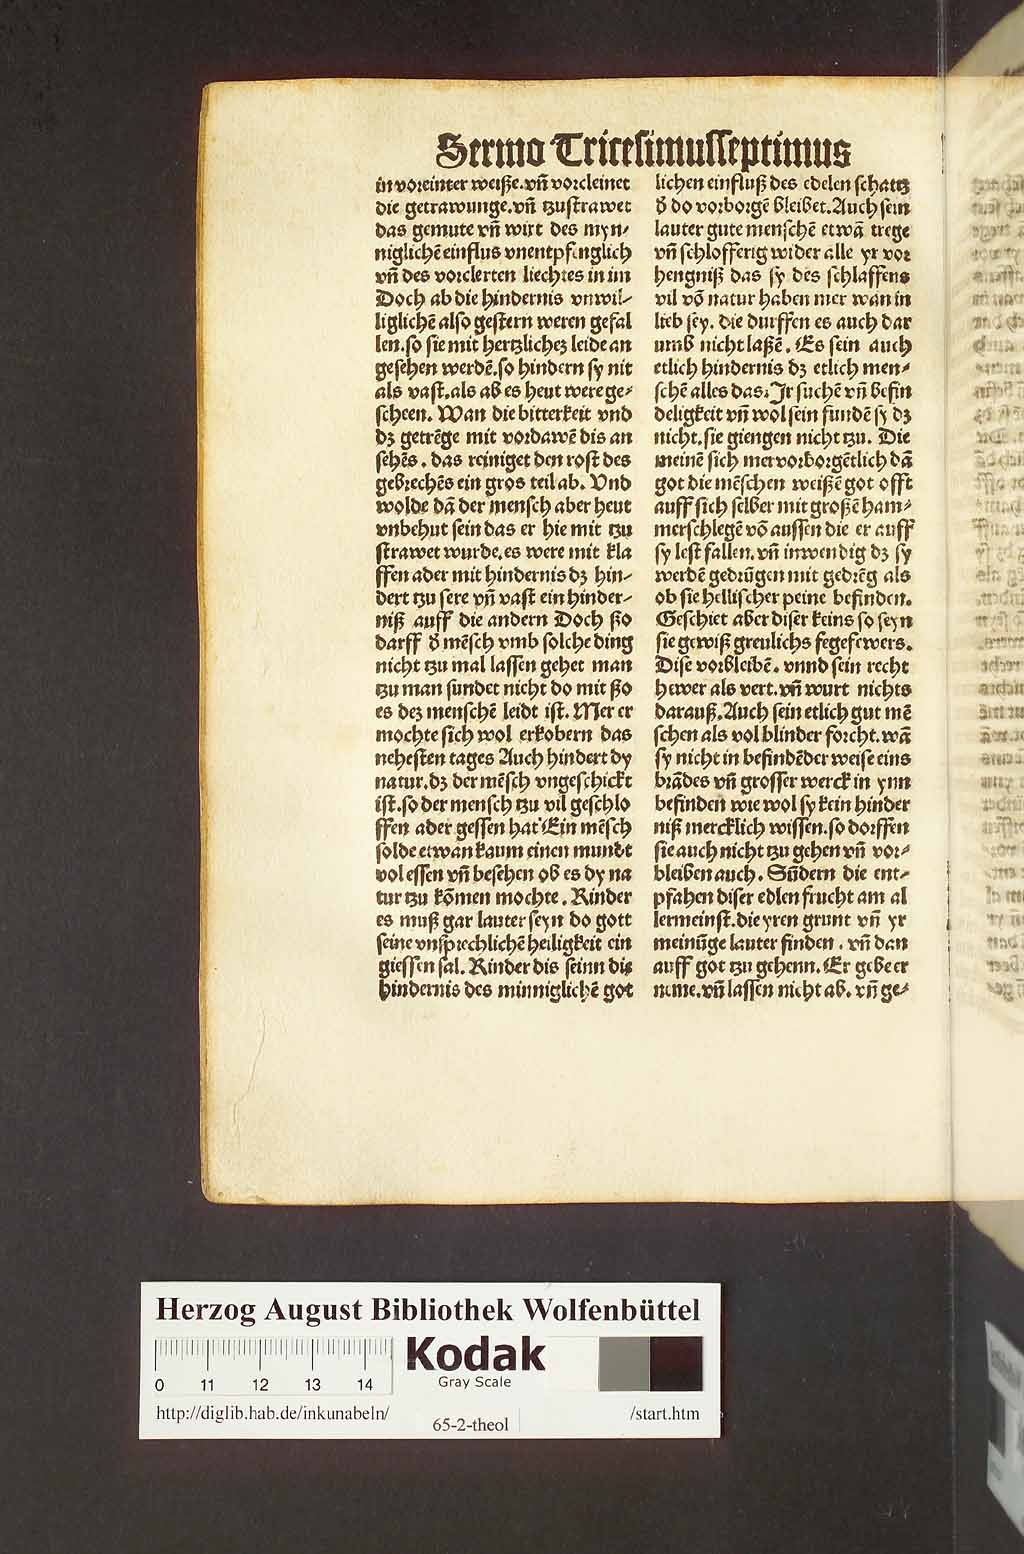 Sermo Tricesimusseptimus
in voreinter weiße. vñ vorcleinet
die getrawunge. vñ tzustrawet
das gemute vñ wirt des myn-
niglichē einflus vnentpfenglich
vñ des vorclerten liechtes in im
Doch ab die hindernis vnwil-
liglichē also gestern weren gefal
len. so sie mit hertzlichez leide an
gesehen werdē. so hindern sy nit
als vast. als ab es heut were ge-
scheen. Wan die bitterkeit vnd
dz getrēge mit vordawē dis an
sehēs. das reiniget den rost des
gebrechēs ein gros teil ab. Vnd
wolde dā der mensch aber heut
vnbehut sein das er hie mit tzu
strawet wurde. es were mit kla
ffen ader mit hindernis dz hin-
dert tzu sere vñ vast ein hinder-
niß auff die andern Doch ßo
darff d' mēsch vmb solche ding
nicht tzu mal lassen gehet man
tzu man sundet nicht do mit ßo
es dez menschē leidt ist. Mer er
mochte sich wol erkobern das
nehesten tages Auch hindert dy
natur. dz der mēsch vngeschickt
ist. so der mensch tzu vil geschlo
ffen ader gessen hat Ein mēsch
solde etwan kaum einen mundt
vol essen vñ besehen ob es dy na
tur tzu kōmen mochte. Kinder
es muß gar lauter seyn do gott
seine vnsprechlichē heiligkeit ein
giessen sal. Kinder dis seinn die
hindernis des minniglichē got
lichen einfluß des edelen schattz
d' do vorborgē bleibet. Auch sein
lauter gute menschē etwā trege
vñ schlofferig wider alle yr vor
hengniß das sy des schlaffens
vil vō natur haben mer wan in
lieb sey. die durffen es auch dar
umb nicht laßē. Es sein auch
etlich hindernis dz etlich men-
schē alles das. Jr suchē vñ befin
deligkeit vñ wol sein fundē sy dz
nicht. sie giengen nicht tzu. Die
meinē sich mer vorborgētlich dā
got die mēschen weißē got offt
auff sich selber mit großē ham-
merschlegē vō aussen die er auff
sy lest fallen. vñ inwendig dz sy
werdē gedrūgen mit gedrēg als
ob sie hellischer peine befinden.
Geschiet aber diser keins so seyn
sie gewiß greulichs fegefewers.
Dise vorbleibē. vnnd sein recht
hewer als vert. vñ wurt nichts
darauß. Auch sein etlich gut mē
schen als vol blinder forcht. wā
sy nicht in befindēder weise eins
brādes vñ grosser werck in ynn
befinden wie wol sy kein hinder
niß mercklich wissen. so dorffen
sie auch nicht tzu gehen vñ vor-
bleiben auch. Sūdern die ent-
pfahen diser edlen frucht am al
lermeinst. die yren grunt vñ yr
meinūge lauter finden. vñ dan
auff got tzu gehenn. Er gebe er
neme. vñ lassen nicht ab. vñ ge-
Herzog August Bibliothek Wolfenbüttel
0 11 12 13 14
Kodak
Gray Scale
http://diglib.hab.de/inkunabeln/
65-2-theol
/start.htm